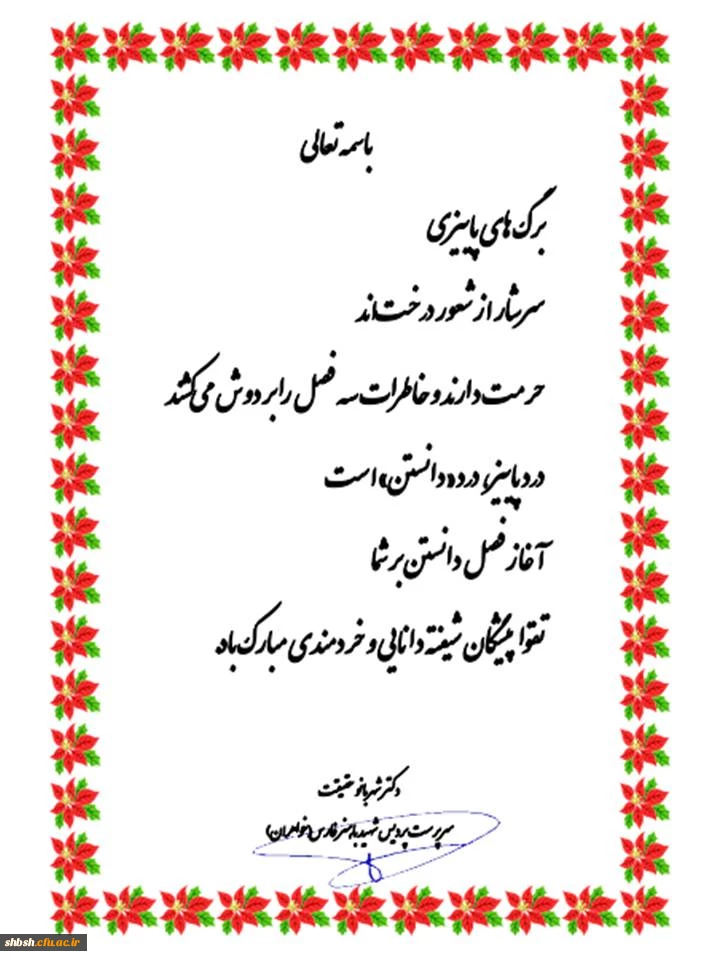 باسمه تعالی
برگ های پاییزی
سرشار از شعور درخت‌اند
حرمت دارند و خاطرات سه فصل را بر دوش می‌کشند
درد پاییز، درد «دانستن» است
آغاز فصل دانستن بر شما
تقوا پیشگان شیفته دانایی و خردمندی مبارک باد.
دکتر شهربانو حقیقت
سرپرست پردیس شهید باهنر فارس (خواهران)
shbsh.cfu.ac.ir